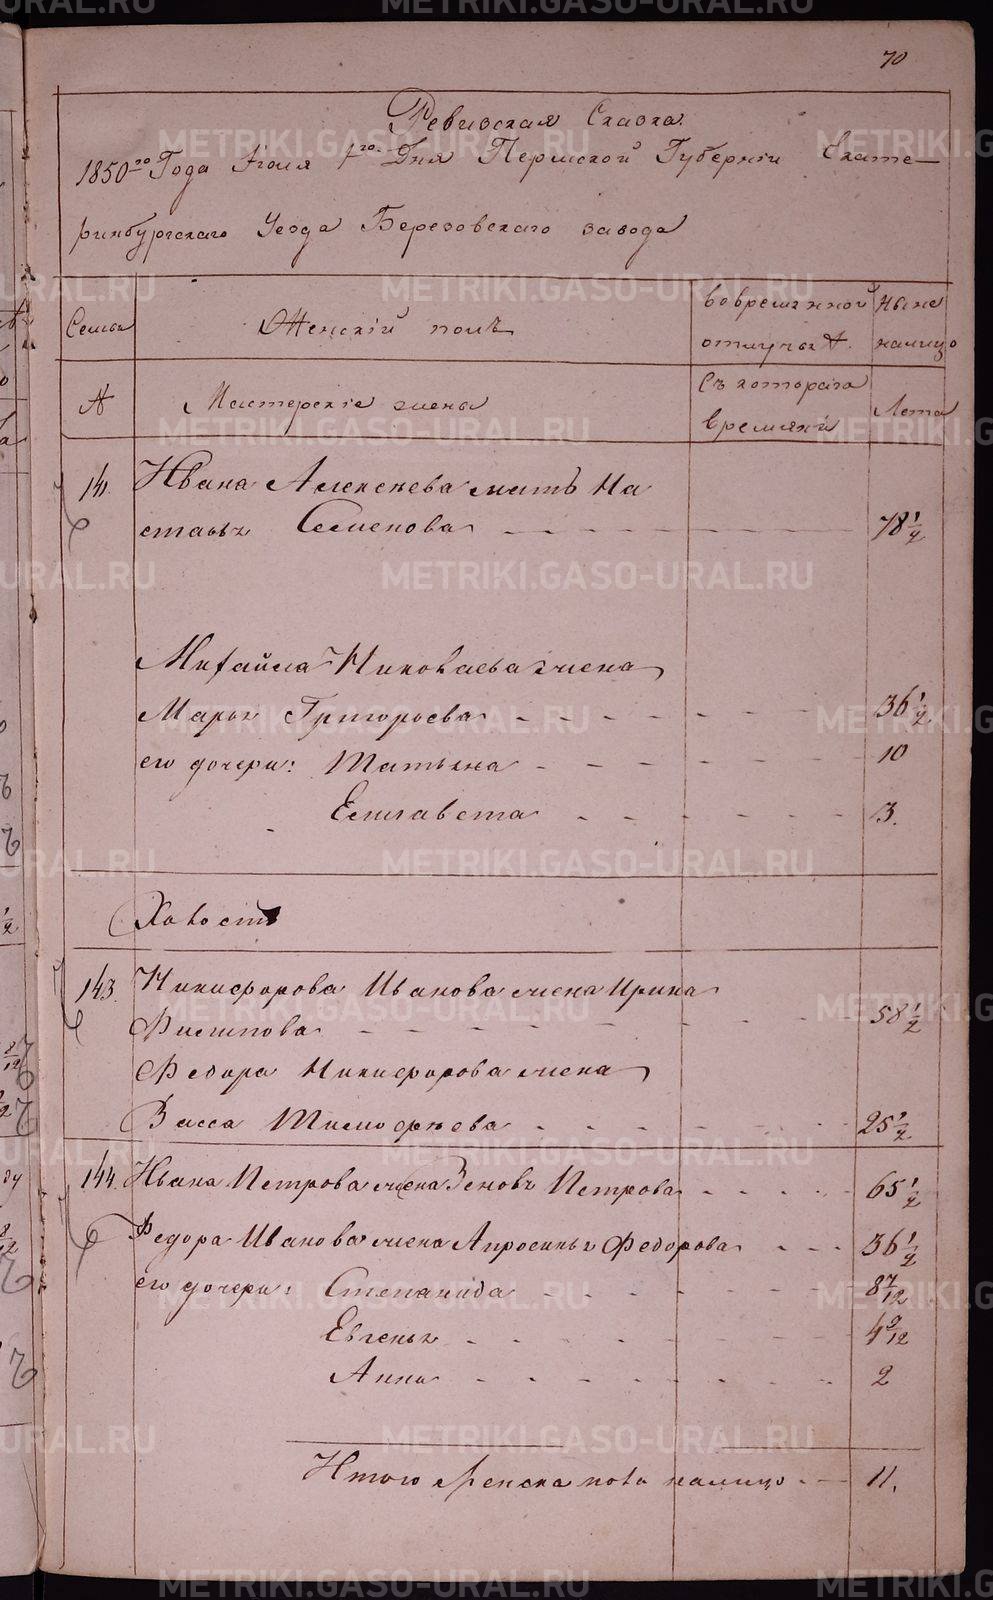 70
Ревизская Сказка
1850го Года Июля 4го Дня Пермской Губерніи Екате-
ринбургскаго Уезда Березовскаго завода
Семьи
Женскій полъ
Во временной
отлучке
Ныне
налицо
№
Мастерскіе жены
Съ котораго
времяни
Лета
141.
Ивана Алексеева мать На
стасья Семенова 78 1/2
Михайла Николаева жена
Марья Григорьева 36 1/2
его дочери: Татьяна 10
Елисавета 3.
Холост
143.
Никифорова Иванова жена Ирина
Филипова 58 1/2
Федора Никифорова жена
Васса Тимофеева 25 1/2
144.
Ивана Петрова жена Зеновья Петрова 65 1/2
Федора Иванова жена Апросинья Федорова 36 1/2
его дочери: Степанида 8 7/12
Евгенья 4 9/12
Анна 2
Итого женска пола налицо 11.
METRIKI.GASO-URAL.RU